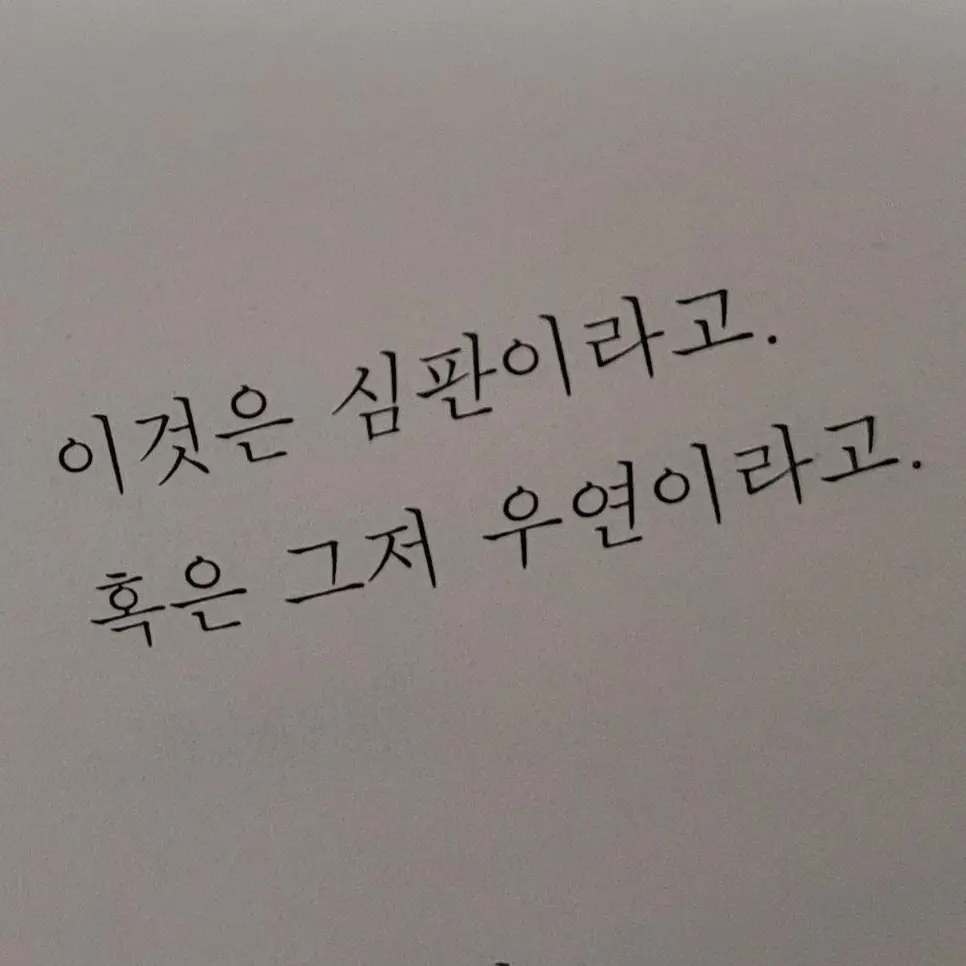 이것은 심판이라고.
혹은 그저 우연이라고.